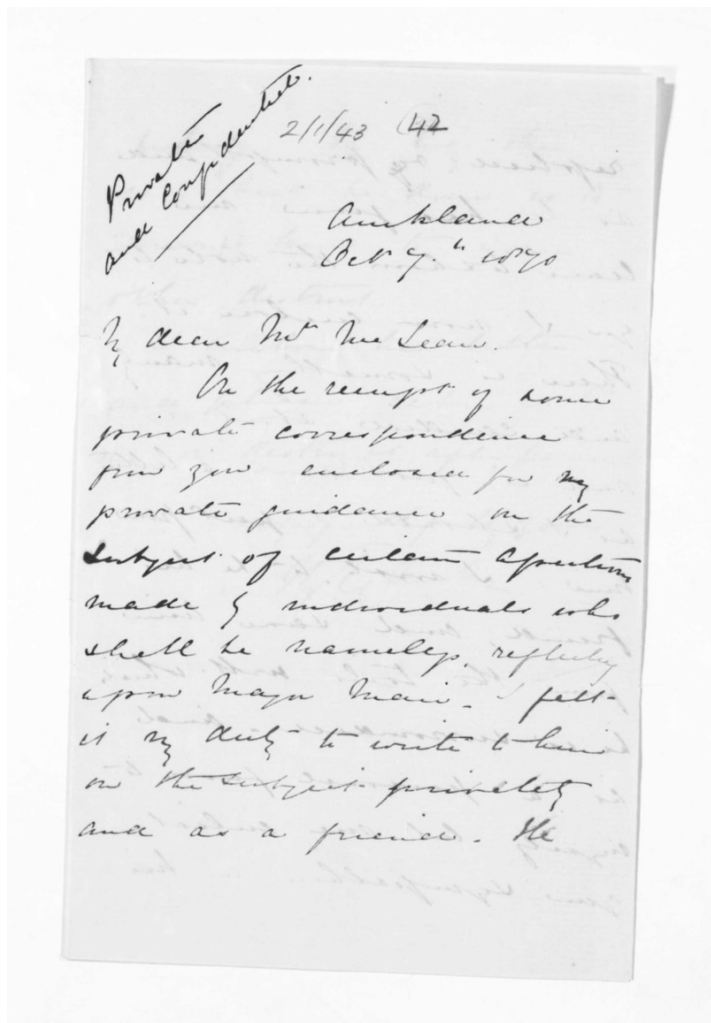 Private
and Confidential.
2/1/43 42
Auckland
Oct 7th 1870
My dear Mr McLean.
On the receipt of some
private correspondence
from you enclosed for my
private guidance on the
subject of certain assertions
made by individuals who
shall be nameless, reflecting
upon Major Mair - I felt
it my duty to write to him
on the subject privately
and as a friend. He